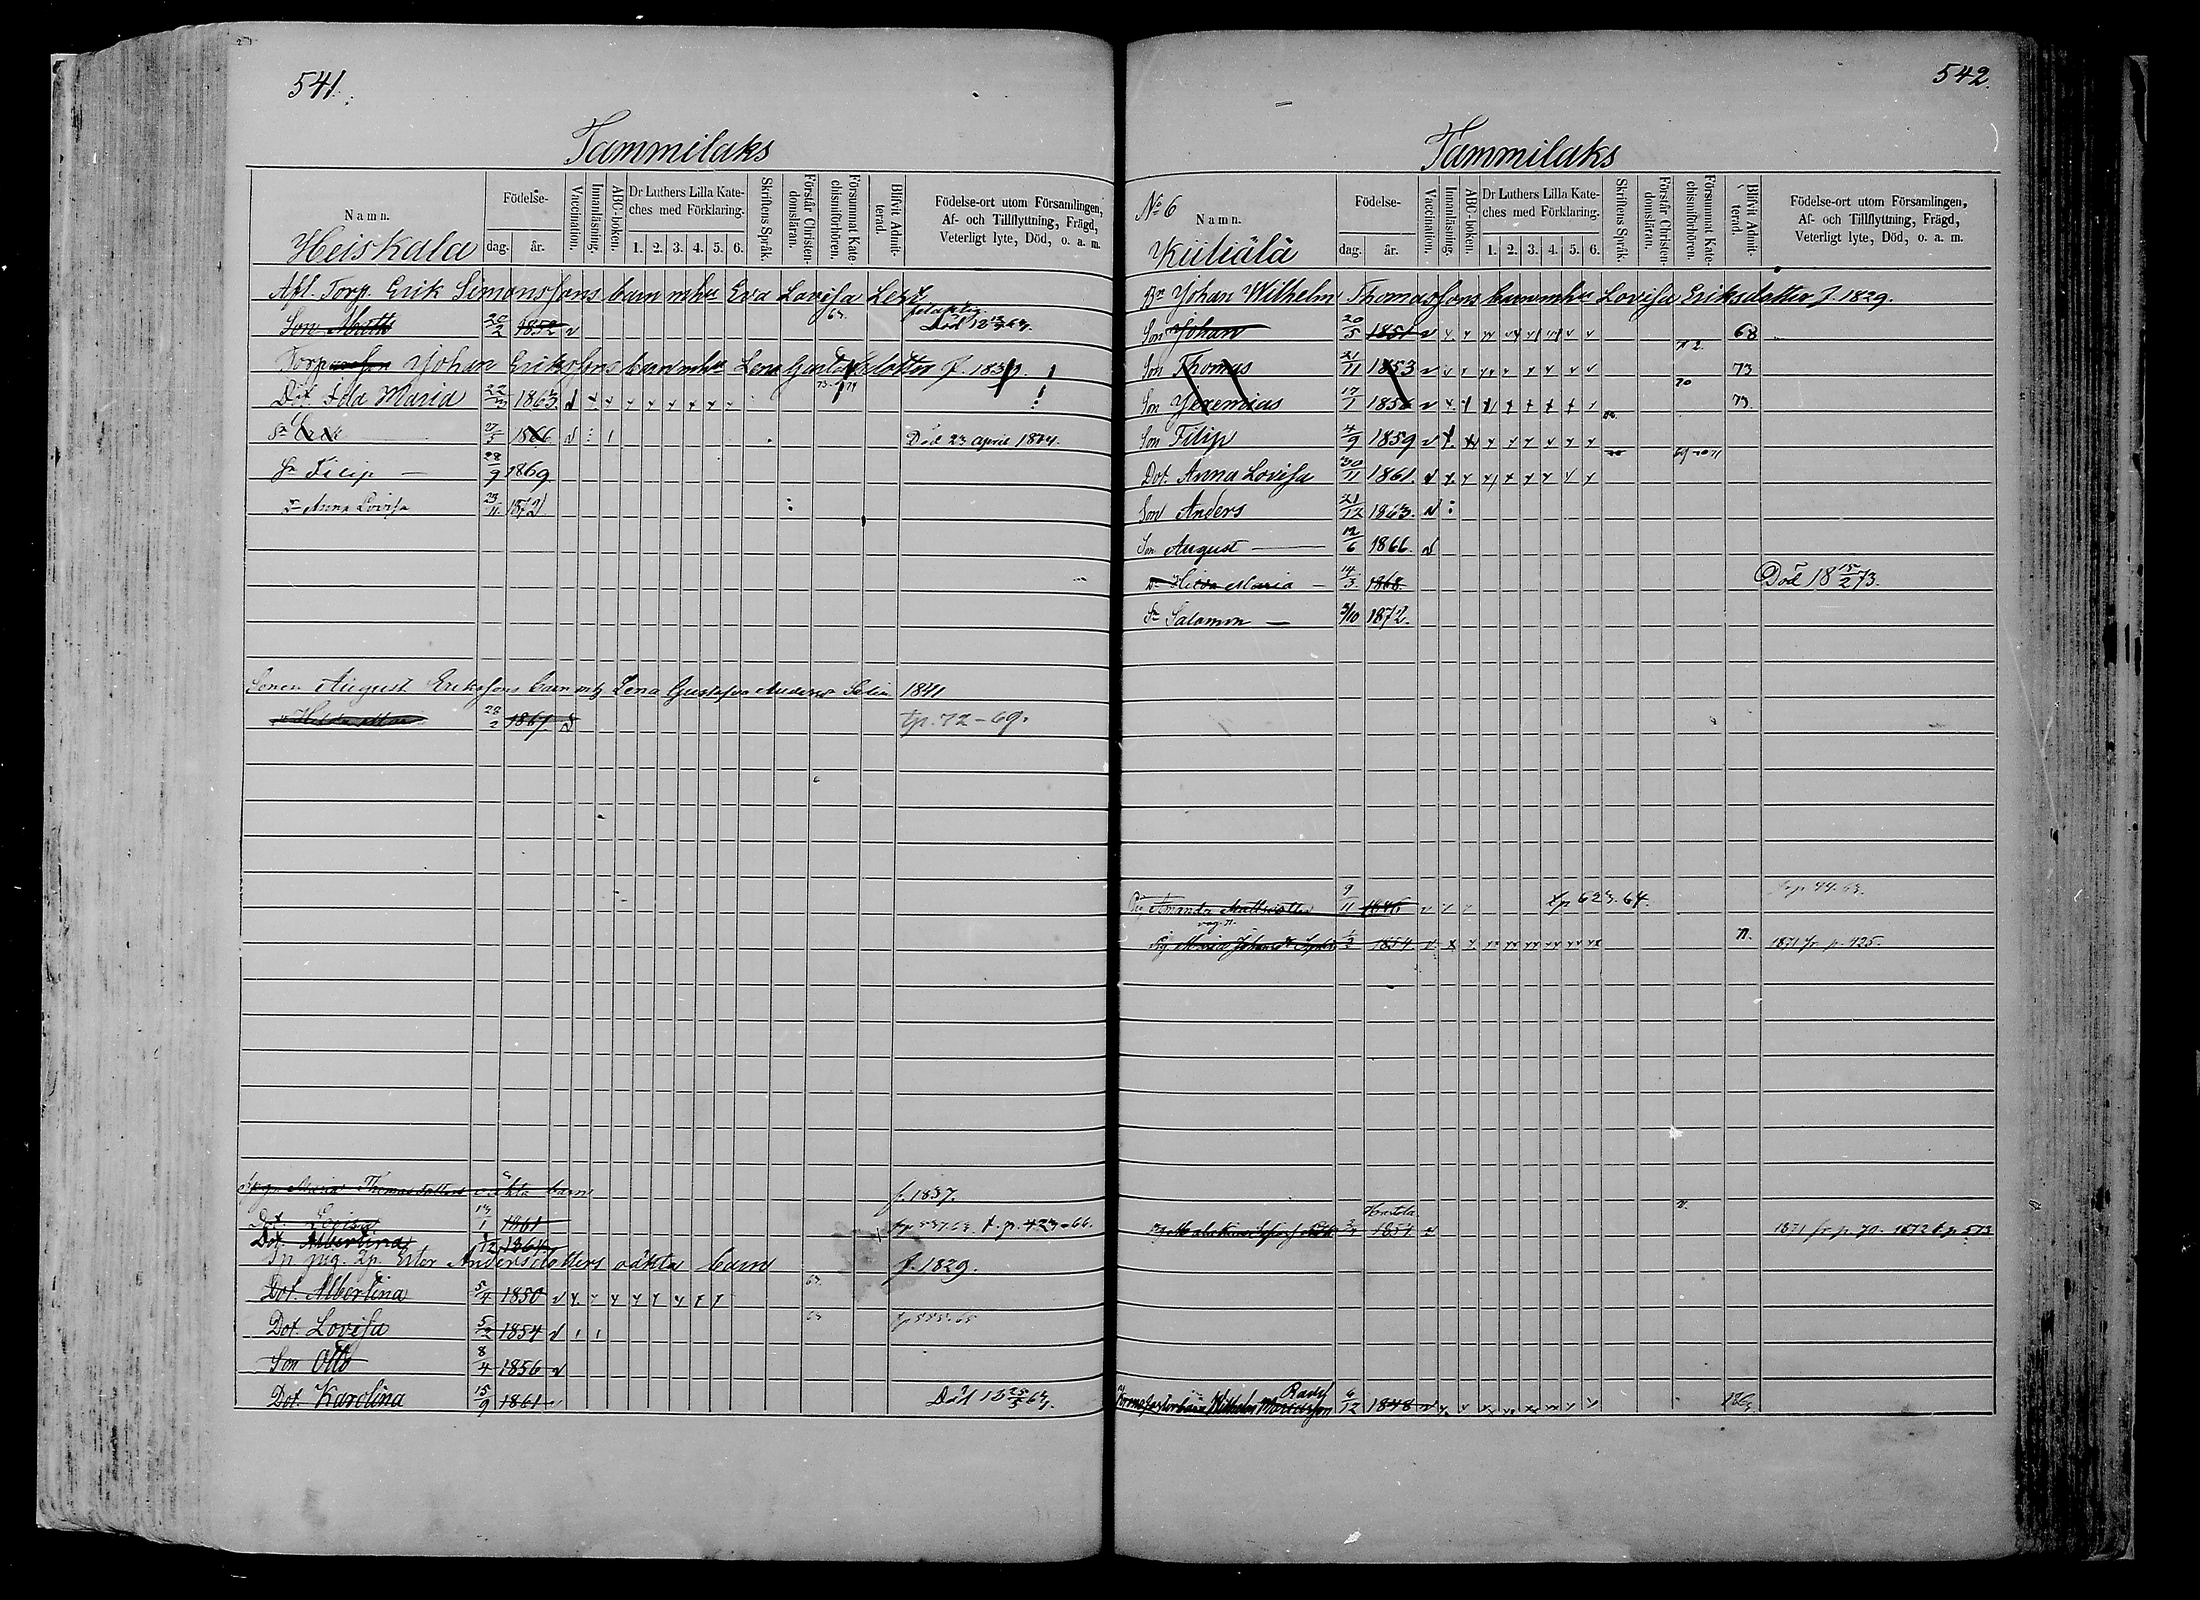 541.
Tammilaks
Namn.
Födelse-
dag. år.
Vaccination.
Innanläsning.
ABC-boken.
Dr Luthers Lilla Kate-
ches med Förklaring.
1. 2. 3. 4. 5. 6.
Skriftens Språk.
Förstår Christen-
domsläran.
Försummat Kate-
chismiförhören.
Blifvit Admit-
terad.
Födelse-ort utom Församlingen,
Af- och Tillflyttning, Frägd,
Veterligt lyte, Död, o. a. m.
Heiskala
Afl. Torp. Erik Simonssons barn mhu Eva Lovisa
Son Math 20/2 1852 v 63. Död
Torp Johan Erikssons barn mhu Lena Gustafsdotter f.
Dot. Ida Maria 22/3 1863
Sn Erik 1866 Död 23 April 1874.
Sn Filip — 28/9 1869
Anna Lovisa 23/11 1872
Sonen August Erikssons barn mh Lena Gustafva Anders 1841
28/2 1867 tp. 72-69.
Maria Thomasdotters oäkta barn f. 1837.
Dot. Lovisa 13/1 1861 t. p. 423-66.
Dot. Albertina
Ester Andersdotters oäkta barn f. 1829.
Dot. Albertina 5/4 1850 63.
Dot. Lovisa 5/2 1854 63
Son Otto 8/4 1856 v
Dot. Karolina 15/9 1861 Död
542.
Tammilaks
No 6
Namn.
Födelse-
dag. år.
Vaccination.
Innanläsning.
ABC-boken.
Dr Luthers Lilla Kate-
ches med Förklaring.
1. 2. 3. 4. 5. 6.
Skriftens Språk.
Förstår Christen-
domsläran.
Försummat Kate-
chismiförhören.
Blifvit Admit-
terad.
Födelse-ort utom Församlingen,
Af- och Tillflyttning, Frägd,
Veterligt lyte, Död, o. a. m.
Johan Wilhelm Thomassons barn mhu Lovisa Eriksdotter f. 1829.
Son Johan 20/5 1851 68
Son Thomas 21/11 1853 73
Son Jeremias 17/1 70 73.
Son Filip 4/9 1859
Dot. Anna Lovisa 30/11 1861.
Son Anders 21/12 1863.
Son August — 12/6 1866.
Maria — 14/3 1868 Död 18 15/2 73.
Sn Salomon — 3/10 1872.
Amanda 9/11 tp 623-64.
Maria 1854 1871 fr. p. 425.
1854 1871 fr. p. 70. 1872 t. p. 573
Wilhelm 6/12 1848